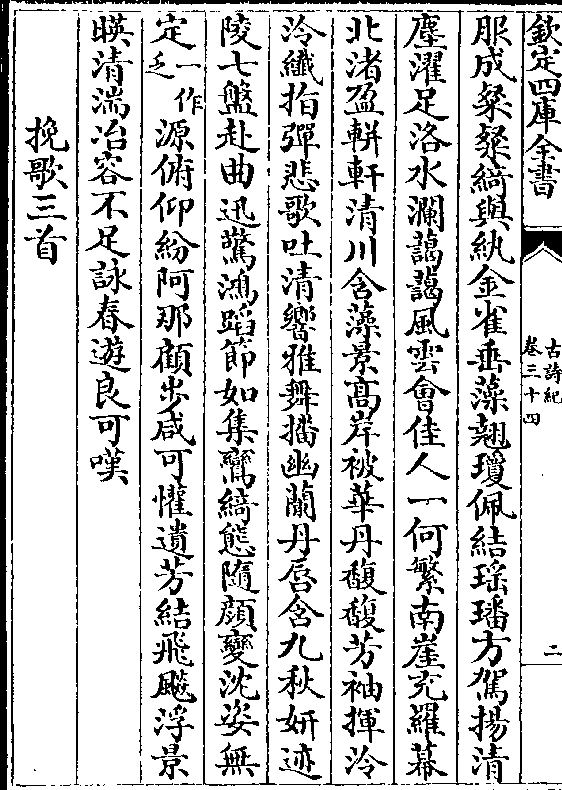 欽定四庫全書
古詩紀
卷三十四
二
服成粲粲綺與紈金雀垂藻翹瓊佩結瑶璠方駕揚清
塵濯足洛水瀾藹藹風雲會佳人一何繁南崖充羅幕
北渚盈軿軒清川含藻景髙岸被華丹馥馥芳袖揮泠
泠纎指彈悲歌吐清響雅舞播幽蘭丹唇含九秋妍迹
陵七盤赴曲迅驚鴻蹈節如集鸞綺態隨顔變沈姿無
定一作乏源俯仰紛阿那顧步咸可懽遺芳結飛飈浮景
暎清湍冶容不足詠春遊良可嘆
挽歌三首